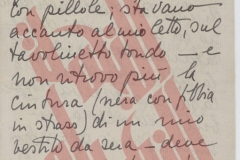 con pillole; stavano
accanto al mio letto, sul
tavolinetto tondo — e
non ritrovo più la
cintura (nera con fibbia
in strass) di un mio
vestito da sera — deve